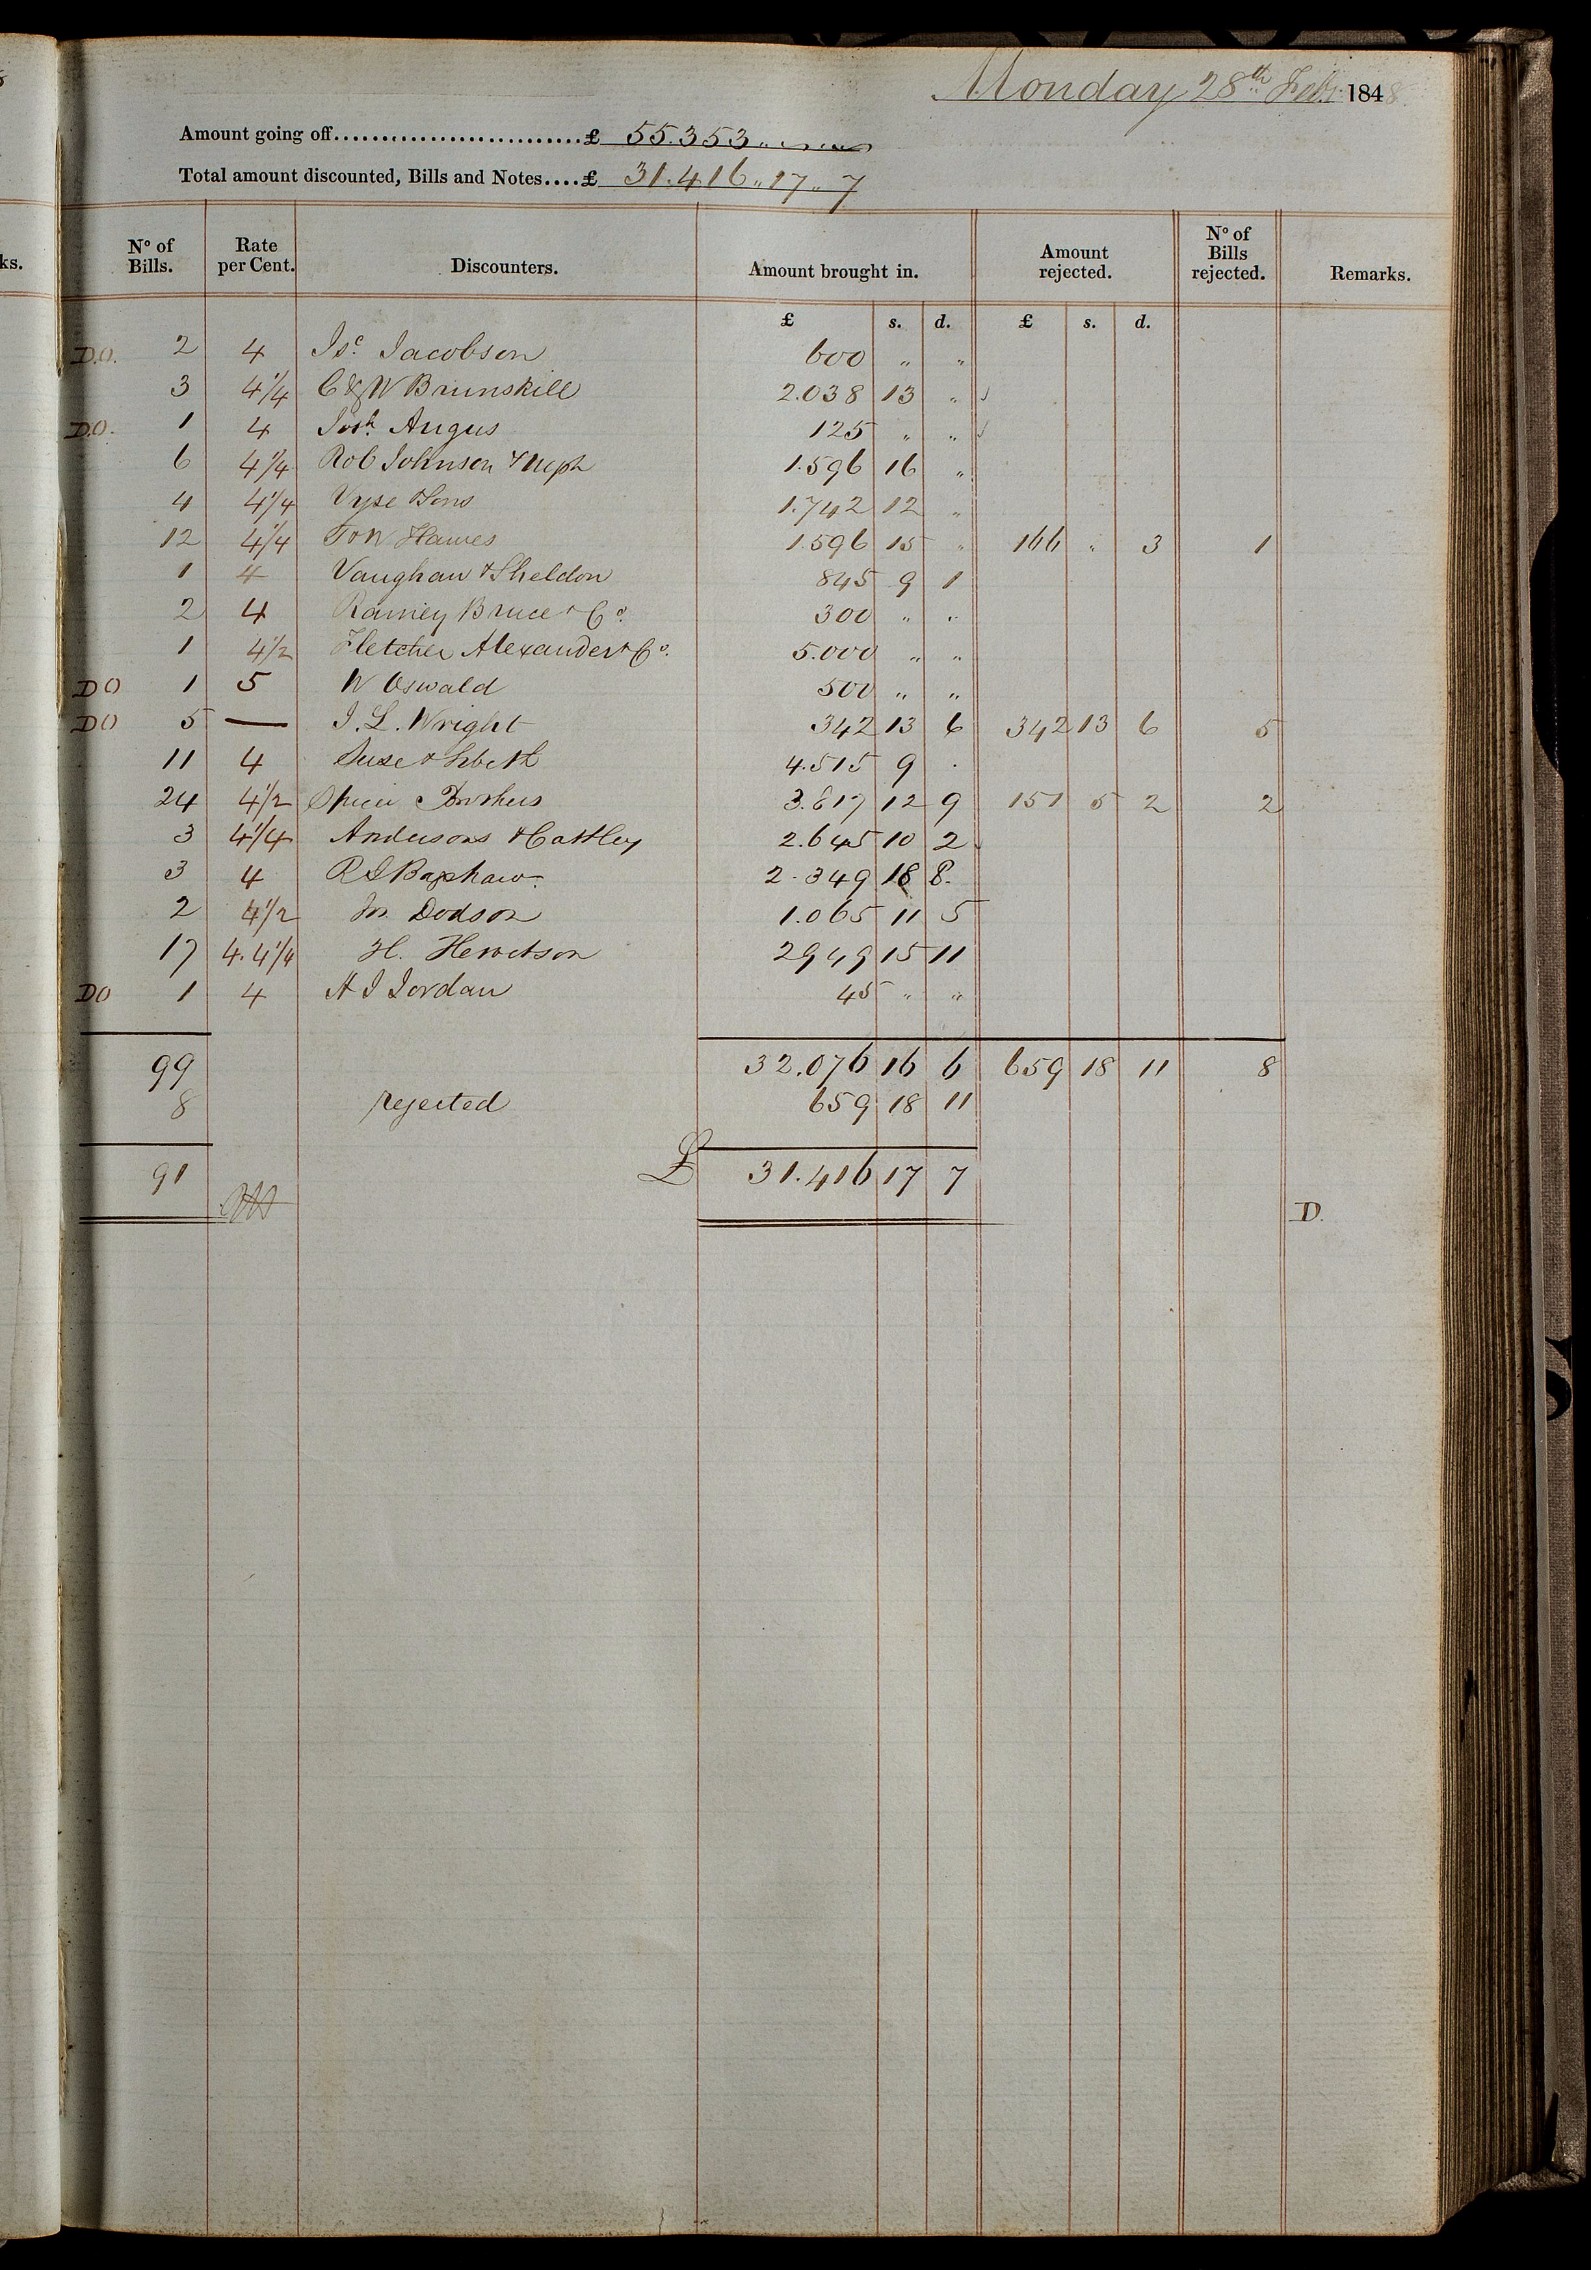 Monday 28th Feb. 1848.
Amount going off..........................£ 55.353 „ „ „
Total amount discounted, Bills and Notes....£ 31.416 „ 17 „ 7
ks.
No of Bills. Rate per Cent. Discounters. Amount brought in. Amount rejected. No of Bills rejected. Remarks.
£ s. d. £ s. d.
D.O. 2 4 Isc Jacobson 600 „ „
3 4 1/4 C & W Brunskill 2.038 13 „
D.O. 1 4 Josh Angus 125 „ „
6 4 1/4 Rob Johnson & Neph 1.596 16 „
4 4 1/4 Vyse & Sons 1.742 12 „
12 4 1/4 T & W Hawes 1.596 15 „ 166 „ 3 1
1 4 Vaughan & Sheldon 845 9 1
2 4 Rainey Bruce & Co. 300 „ „
1 4 1/2 Fletcher Alexander & Co. 5.000 „ „
DO 1 5 W Oswald 500 „ „
DO 5 — J. L. Wright 342 13 6 342 13 6 5
11 4 Suse & Sibeth 4.515 9 .
24 4 1/2 Spicer Brothers 3.817 12 9 151 5 2 2
3 4 1/4 Andersons & Cattley 2.645 10 2
3 4 R J Bagshaw. 2.349 18 8.
2 4 1/2 Jn Dodson 1.065 11 5
17 4. 4 1/4 H. Hewetson 2949 15 11
DO 1 4 H J Jordan 45 „ „
99 32.076 16 6 659 18 11 8
8 rejected 659 18 11
91 £ 31.416 17 7
D.